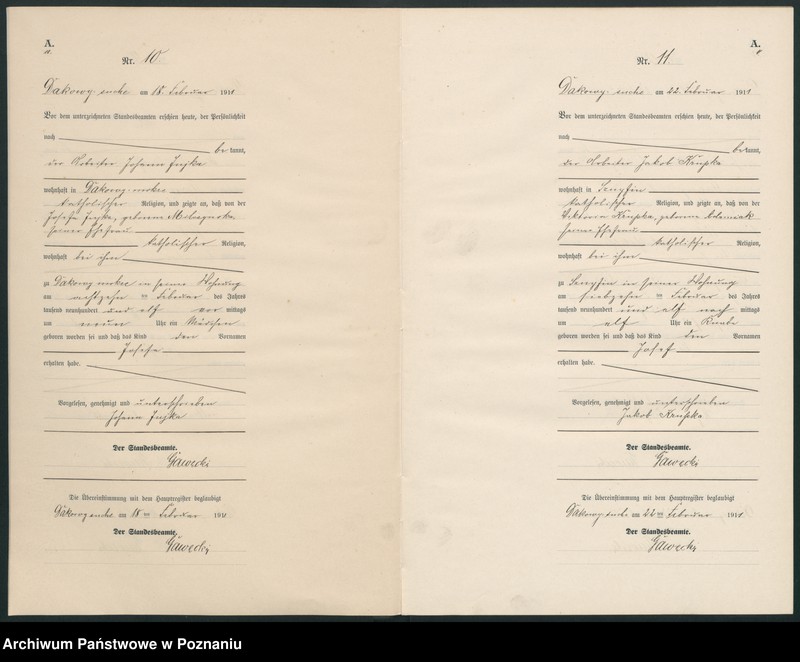 A.
Nr. 10
Dakowy-mokre am 18. Februar 1911
Vor dem unterzeichneten Standesbeamten erschien heute, der Persönlichkeit
nach
bekannt,
der Arbeiter Johann
wohnhaft in Dakowy-mokre
katholischer Religion, und zeigte an, daß von der
Josefa geborene
seiner Ehefrau
katholischer Religion,
wohnhaft bei ihm
zu Dakowy mokre in seiner Wohnung
am achtzehn ten Februar des Jahres
tausend neunhundert und elf vor mittags
um neun Uhr ein Mädchen
geboren worden sei und daß das Kind den Vornamen
Josefa
erhalten habe.
Vorgelesen, genehmigt und unterschrieben
Johann
Der Standesbeamte.
Gawecki
Die Übereinstimmung mit dem Hauptregister beglaubigt
am 18 ten Februar 1911
Der Standesbeamte.
Gawecki
A.
Nr. 11
am 22. Februar 1911
Vor dem unterzeichneten Standesbeamten erschien heute, der Persönlichkeit
nach
bekannt,
der Arbeiter Jakob Krupka
wohnhaft in Senzfin
katholischer Religion, und zeigte an, daß von der
Viktoria Krupka, geborene Adamiak
seiner Ehefrau
katholischer Religion,
wohnhaft bei ihm
zu Senzfin in seiner Wohnung
am siebzehn ten Februar des Jahres
tausend neunhundert und elf nach mittags
um elf Uhr ein Knabe
geboren worden sei und daß das Kind den Vornamen
Josef
erhalten habe.
Vorgelesen, genehmigt und unterschrieben
Jakob Krupka
Der Standesbeamte.
Gawecki
Die Übereinstimmung mit dem Hauptregister beglaubigt
am 22 ten Februar 1911
Der Standesbeamte.
Gawecki
Archiwum Państwowe w Poznaniu